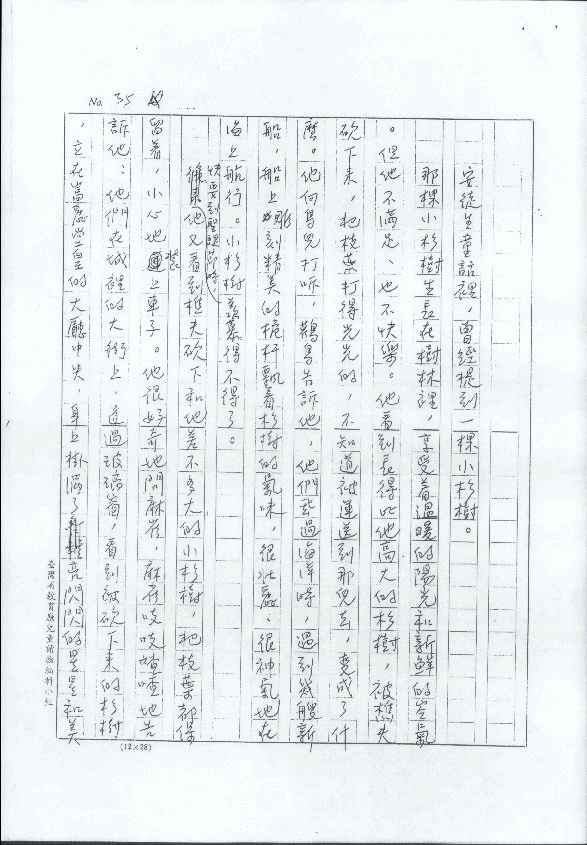 No. 35
安徒生童話裡，曾經提到一棵小杉樹。
那棵小杉樹生長在樹林裡，享受着溫暖的陽光和新鮮的空氣
。但他不滿足、也不快樂。他看到長得比他高大的杉樹，被樵夫
砍下來，把枝葉打得光光的，不知道被運送到那兒去，變成了什
麼。他向鳥兒打听，鸛鳥告訴他，他們飛過海洋時，遇到幾艘新
船，船上雕刻精美的桅杆飄着杉樹的氣味，很壯麗、很神氣地在
海上船行。小杉樹羨慕得不得了。
快要到聖誕節時，
後來他又看到樵夫砍下和他差不多大的小杉樹，把枝葉都保
留着，小心地裝上車子。他很好奇地問麻雀，麻雀吱吱喳喳地告
訴他：他們在城裡的大街上，透過玻璃窗，看到被砍下來的杉樹
，立在富麗堂皇的大廳中央，身上掛滿了亮閃閃的星星和美
臺灣省教育廳兒童讀物編輯小組
(12×28)